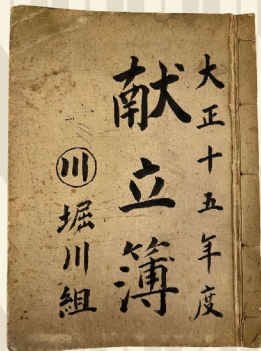 大正十五年度
献立簿
川 堀川組